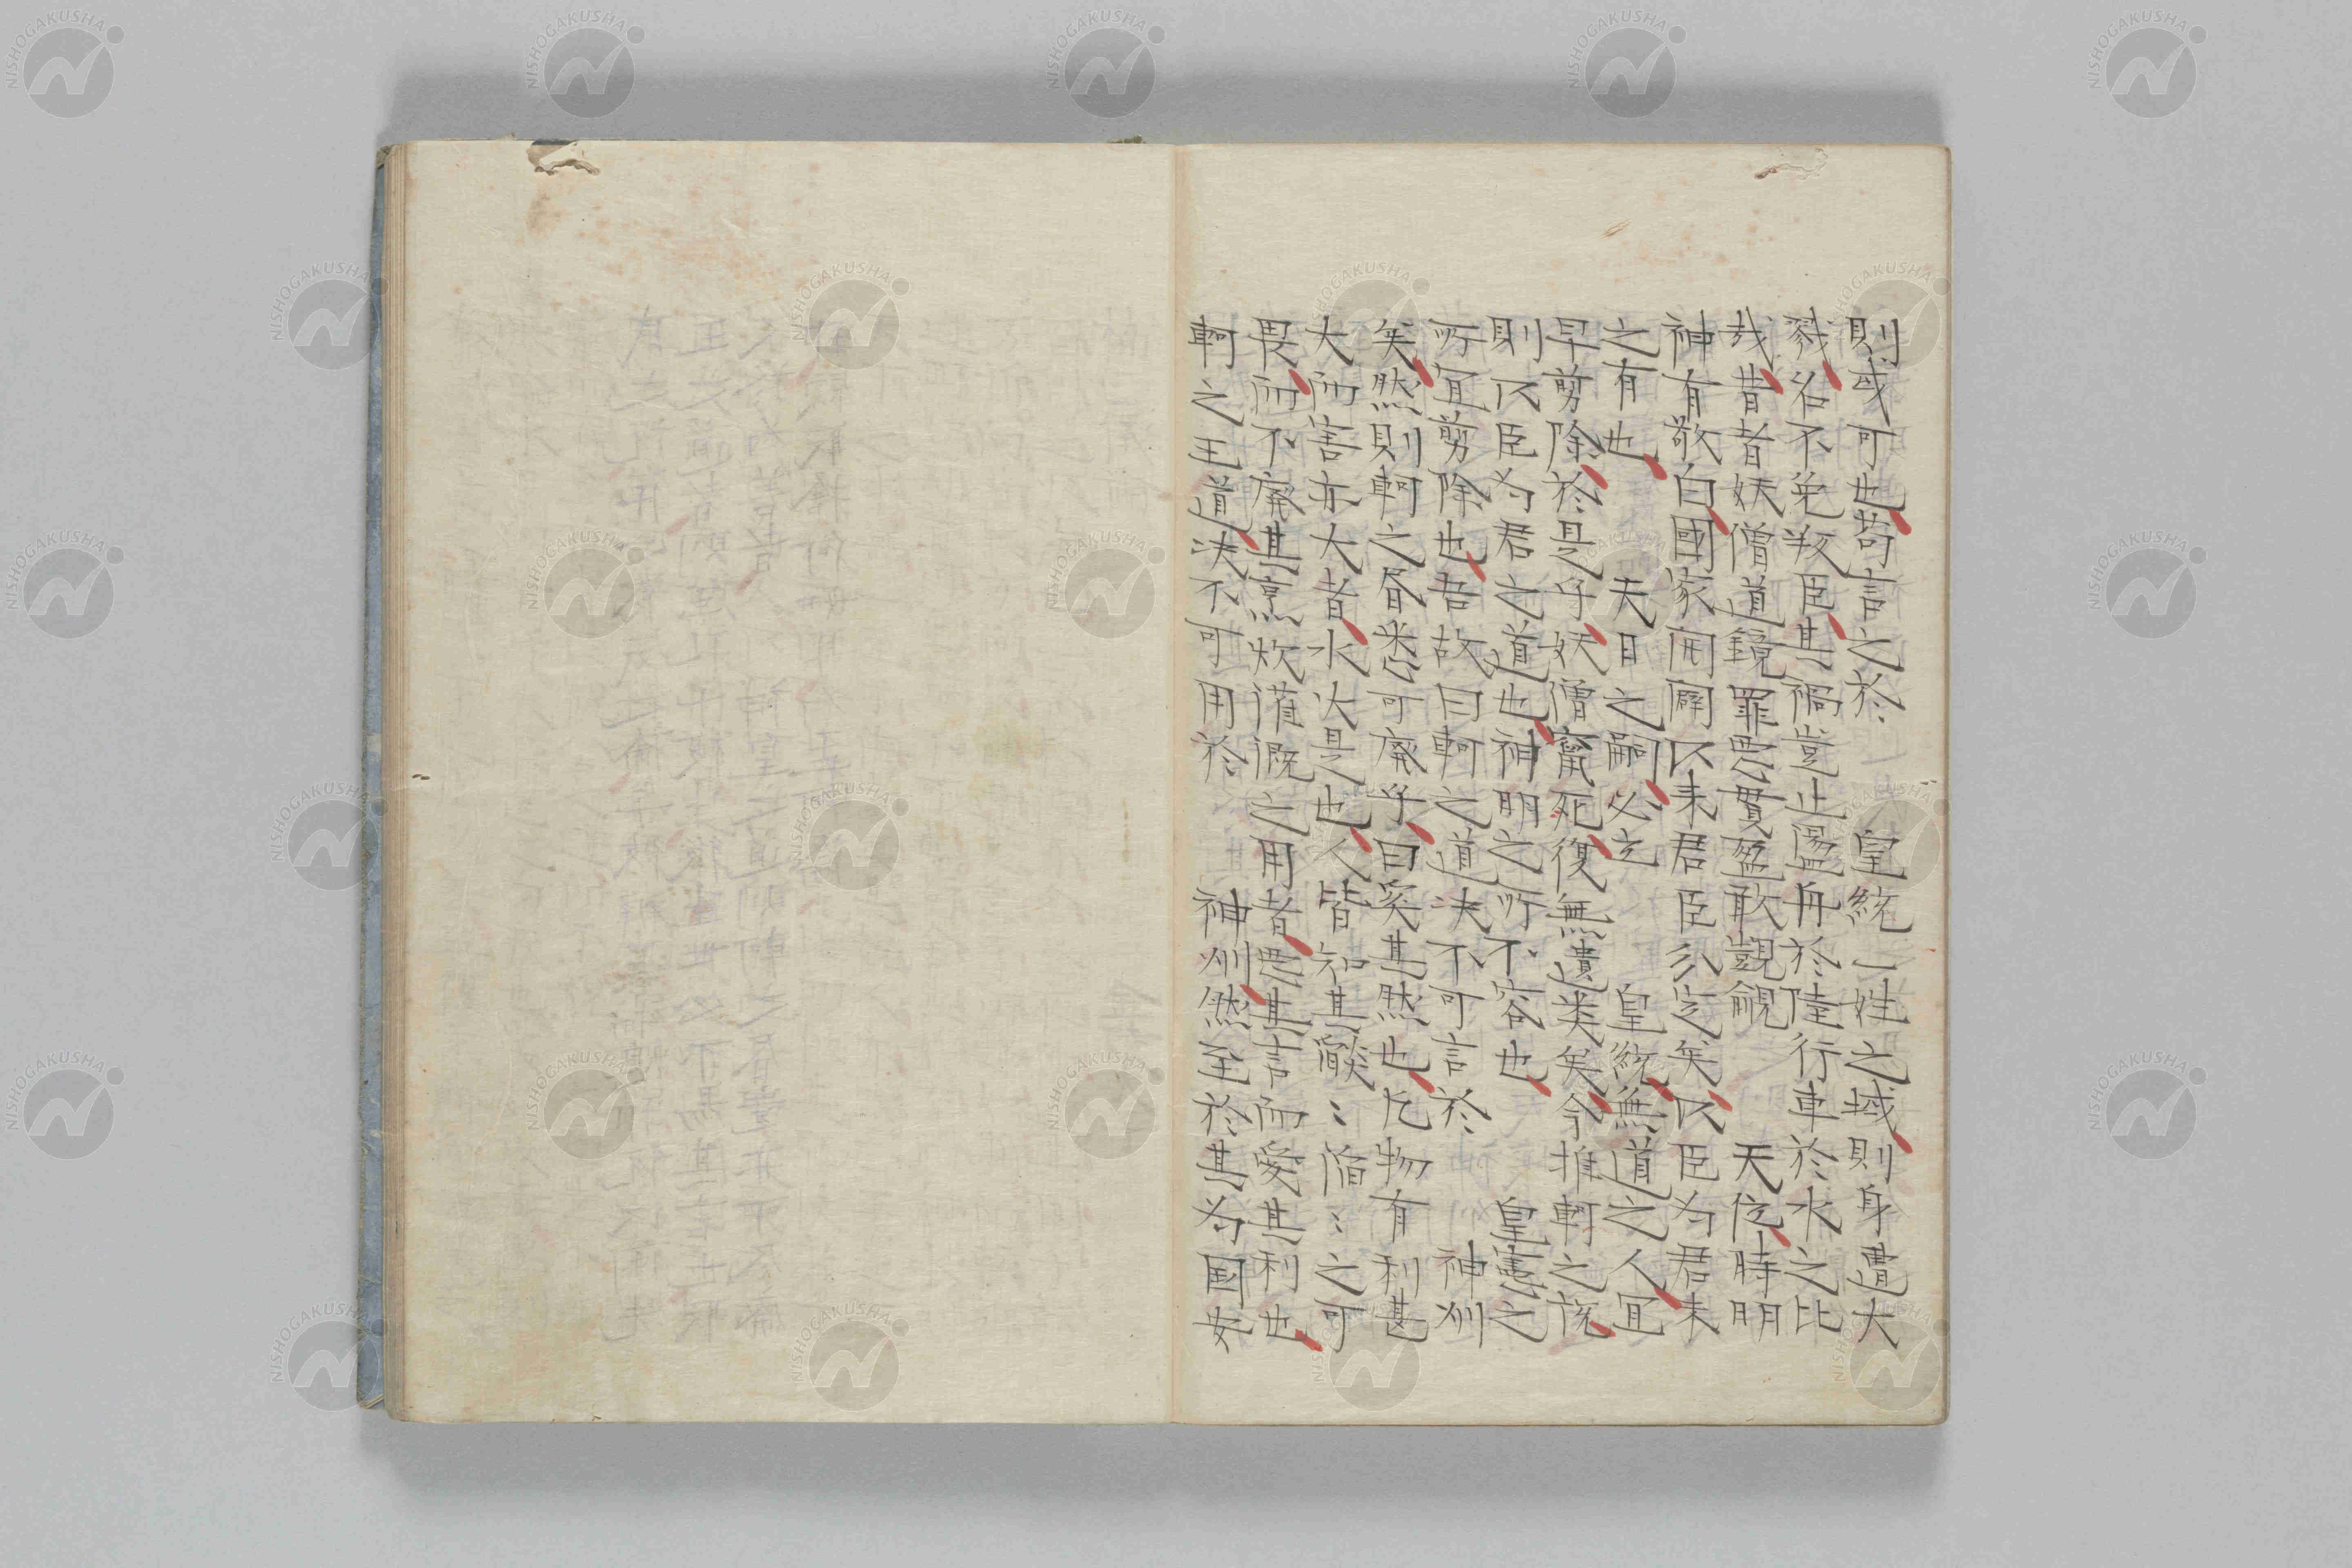 則或可也苟言之於　皇統一姓之域則身遭大
戮名不免叛臣其禍豈止盪舟於陸行車於水之比
哉昔者妖僧道鏡罪悪貫盈敢覬覦　天位時明
神有敬白國家開闢以来君臣分定矣以臣為君未
之有也　天日之嗣必立　皇統無道之人宜
早剪除於是乎妖僧竄死復無遺类矣今推軻之說
則以臣為君之道也神明之所不容也　皇憲之
所宜剪除也吾故曰軻之道决不可言於　神州
矣然則軻之昏悉可廃乎曰奚其然也凢物有利甚
大而害亦大者水火是也人皆知其燄〻滔〻之可
畏而不廃其烹炊灌溉之用者悪其害而愛其利也
軻之王道决不可用於　神州然至於其為国安
NISHOGAKUSHA